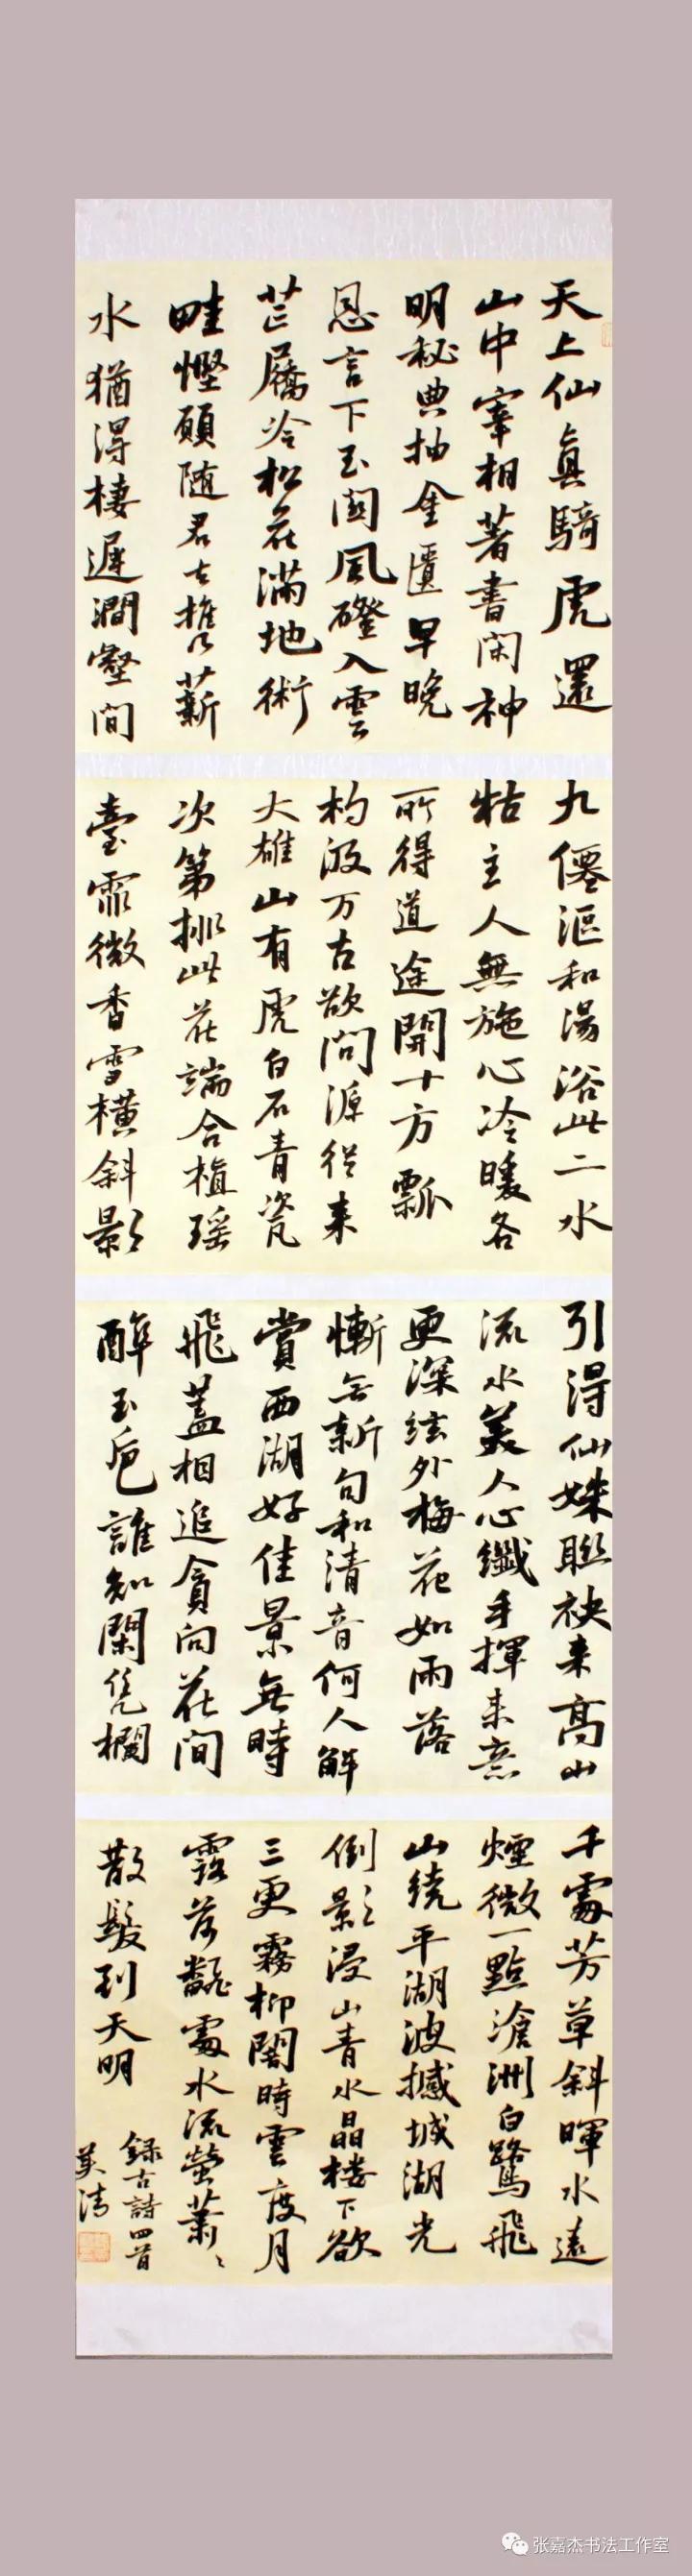 天上仙真騎虎還
山中宰相著書閑神
明秘典抽金匱早晚
恩言下玉関風磴入雲
芒屩冷松花滿地術
畦慳願随君去携薪
水猶得棲遲澗壑間
九僊漚和湯浴此二水
牯主人無施心冷暖各
所得道途開十方瓢
杓汲万古欲問源從来
大雄山有虎白石青瓷
次第排此花端合植瑶
臺霏微香雪橫斜影
引得仙姝聯袂来高山
流水美人心纖手揮来意
更深絃外梅花如雨落
慚無新句和清音何人解
賞西湖好佳景無時
飛蓋相追貪向花間
醉玉卮誰知閑凭欄
千處芳草斜暉水遠
煙微一點滄洲白鷺飛
山繞平湖波撼城湖光
倒影浸山青水晶楼下欲
三更霧柳闇時雲度月
露荷翻處水流螢蕭〻
散髮到天明
録古詩四首
英清
张嘉杰书法工作室